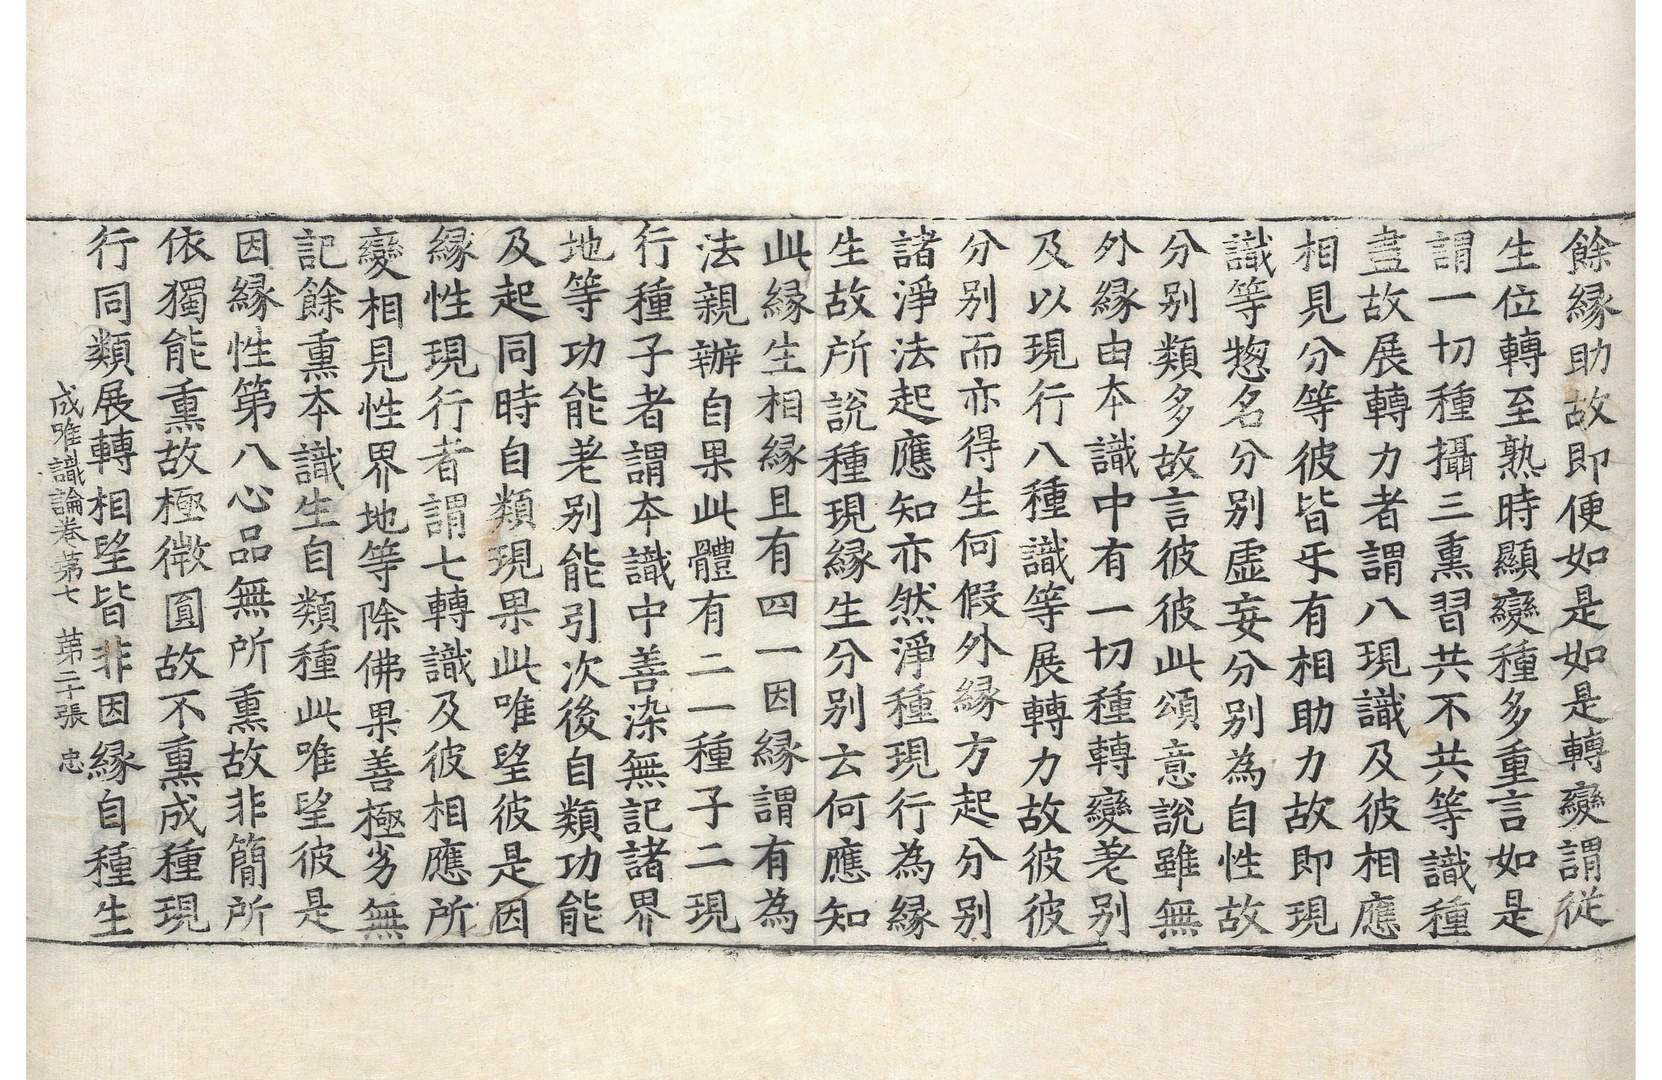 餘縁助故即便如是如是轉變謂從
生位轉至熟時顯變種多重言如是
謂一切種攝三熏習共不共等識種
盡故展轉力者謂八現識及彼相應
相見分等彼皆乐有相助力故即現
識等惣名分别虛妄分别為自性故
分别類多故言彼彼此頌意說雖無
外縁由本識中有一切種轉變差别
及以現行八種識等展轉力故彼彼
分别而亦得生何假外縁方起分别
諸淨法起應知亦然淨種現行為縁
生故所說種現縁生分别云何應知
此縁生相縁且有四一因縁謂有為
法親辦自果此體有二一種子二現
行種子者謂本識中善染無記諸界
地等功能差别能引次後自類功能
及起同時自類現果此唯望彼是因
縁性現行者謂七轉識及彼相應所
變相見性界地等除佛果善極劣無
記餘熏本識生自類種此唯望彼是
因縁性第八心品無所熏故非簡所
依獨能熏故極微圎故不熏成種現
行同類展轉相望皆非因縁自種生
成唯識論卷第七 第二十張 忠